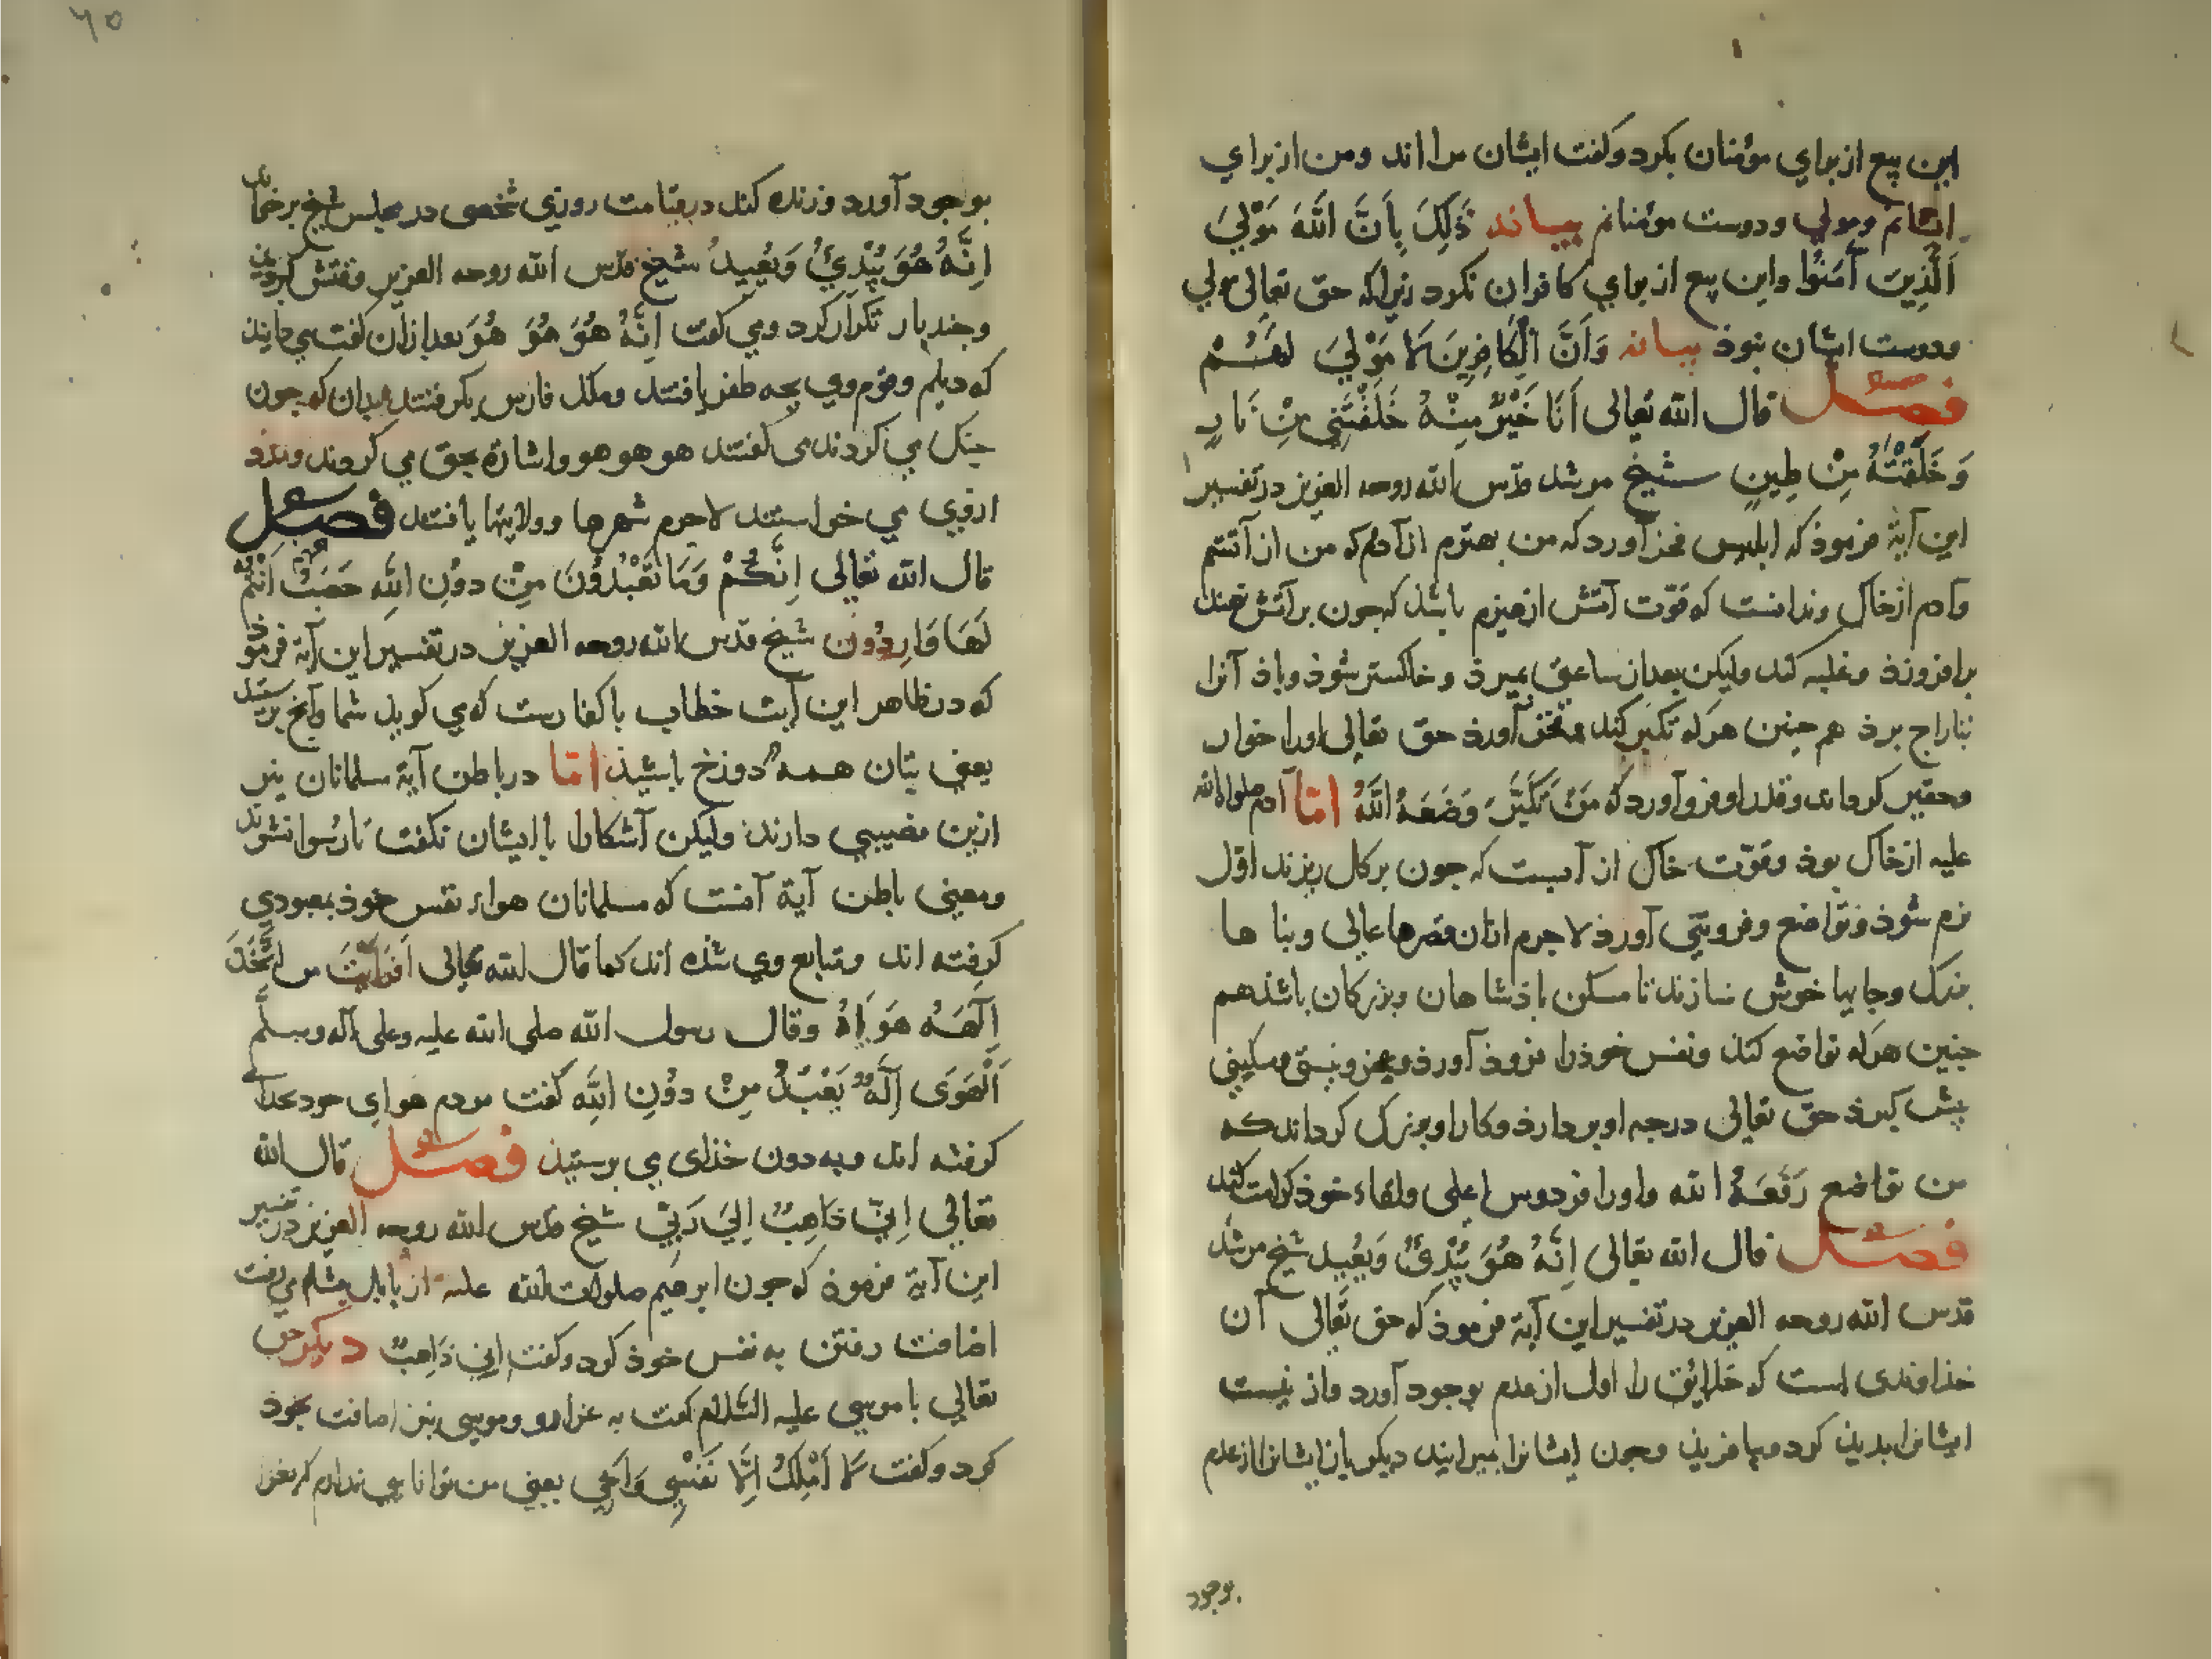 این بیع از برای مؤمنان بکرد وکفت ایشان مرا اند ومن از برای
ایشانم ومولی ودوست مؤمنانم بیانه ذَلِکَ بِاَنَّ اللّٰهَ مَوْلَی
اَلَّذِینَ آمَنُوا واین بیع از برای کافران نکرد زیراکه حق تعالی مولی
ودوست ایشان نبوذ بیانه وَاَنَّ الْکَافِرِینَ لَا مَوْلَی لَهُمْ
فصل قال الله تعالی اَنَا خَیْرٌ مِنْهُ خَلَقْتَنِی مِنْ نَارٍ
وَخَلَقْتَهُ مِنْ طِینٍ شیخ مرشد قدّس الله روحه العزیز در تفسیر
این آیة فرموذ که ابلیس فخر آورد که من بهترم از آدم که من از آتشم
وآدم از خاک وندانست که قوّت آتش از هیزم باشد که جون بر آتش نهند
برافروزذ وغلبه کند ولیکن بعد از ساعتی بمیرذ وخاکستر شوذ وباذ آنرا
بتاراج برذ هم جنین هر که تکبر کند وفخر آورذ حق تعالی اورا خوار
وحقیر کرداند وقدر او فرو آورد که مَنْ تَکَبَّرَ وَضَعَهُ اللّٰهُ امّا آدم صلوات الله
علیه از خاک بوذ وقوّت خاک از آبست که جون بر کل ریزند اوّل
نرم شوذ وتواضع وفروتنی آورذ لاجرم ازان قصرها عالی وبنا ها
بزرک وجایها خوش سازند تا مسکن باذشاهان وبزرکان باشذ هم
جنین هر که تواضع کند ونفس خوذ را فروذ آورذ وعجز ونیستی ومسکینی
پیش کیرذ حق تعالی درجه او بر دارذ وکار او بزرک کرداند که
من تواضع رَفَعَهُ الله واورا فردوس اعلی ولقاء خوذ کرامت کند
فصل قال الله تعالی اِنَّهُ هُوَ یُبْدِئُ وَیُعِید شیخ مرشد
قدس الله روحه العزیز در تفسیر این آیة فرموذ که حق تعالی آن
خذاوندی است که خلائق را اول از عدم بوجود آورد واز نیست
ایشانرا بدیذ کرد وبیافریذ وجون ایشانرا بمیرانید دیکر باز ایشانرا از عدم
بوجود
٦٥
بوجود آورد وزنده کند در قیامت روزی شخصی در مجلس شیخ برخواند
اِنَّهُ هُوَ یُبْدِئُ وَیُعِیدُ شیخ قدّس الله روحه العزیز وقتش
وجند بار تکرار کرد ومی کفت اِنَّهُ هُوَ هُوَ هُوَ بعد ازان کفت می دانید
که دیلم وقوم وی بجه ظفر یافتند وملک فارس بکرفتند بدان که جون
جنک می کردند می کفتند هو هو هو واشارة بحق می کردند ومدد
ازوی می خواستند لاجرم شهرها وولایتها یافتند فصل
قال الله تعالی اِنَّکُمْ وَمَا تَعْبُدُونَ مِنْ دُونِ اللّٰهِ حَصَبُ جهنم اَنْتُمْ
لَهَا وَارِدُونَ شیخ قدّس الله روحه العزیز در تفسیر این آیة فرموذ
که در ظاهر این آیت خطاب با کفارست که می کویذ شما وآنج پرستید
یعنی بتان همه در دوزخ باشیذ امّا در باطن آیة مسلمانان نیز
ازین نصیبی دارند ولیکن آشکارا با ایشان نکفت تا رسوا نشوند
ومعنی باطن آیة آنست که مسلمانان هواء نفس خوذ بمعبودی
کرفته اند ومتابع وی شذه اند کما قال الله تعالی اَفَرَاَیْتَ من اتَّخَذَ
اِلٰهَهُ هَوَاهُ وقال رسول الله صلی الله علیه وعلی آله وسلّم
اَلْهَوَی اِلٰهٌ یُعْبَدُ مِنْ دُونِ اللّٰهِ کفت مردم هوای خود بخدا
کرفته اند وبه دون خذای می پرستیذ فصل قال الله
تعالی اِنِّی ذَاهِبٌ اِلَی رَبِّی شیخ قدّس الله روحه العزیز در تفسیر
این آیة فرموذ که جون ابرهیم صلوات الله علیه از بابل بشام می رفت
اضافت رفتن به نفس خوذ کرد وکفت اِنی ذَاهِبٌ دیکر حق
تعالی با موسی علیه السّلام کفت به غزا رو وموسی نیز اضافت بخوذ
کرد وکفت لَا اَمْلِکُ اِلَّا نَفْسِی وَاَخِی یعنی من توانایی ندارم که بغزا